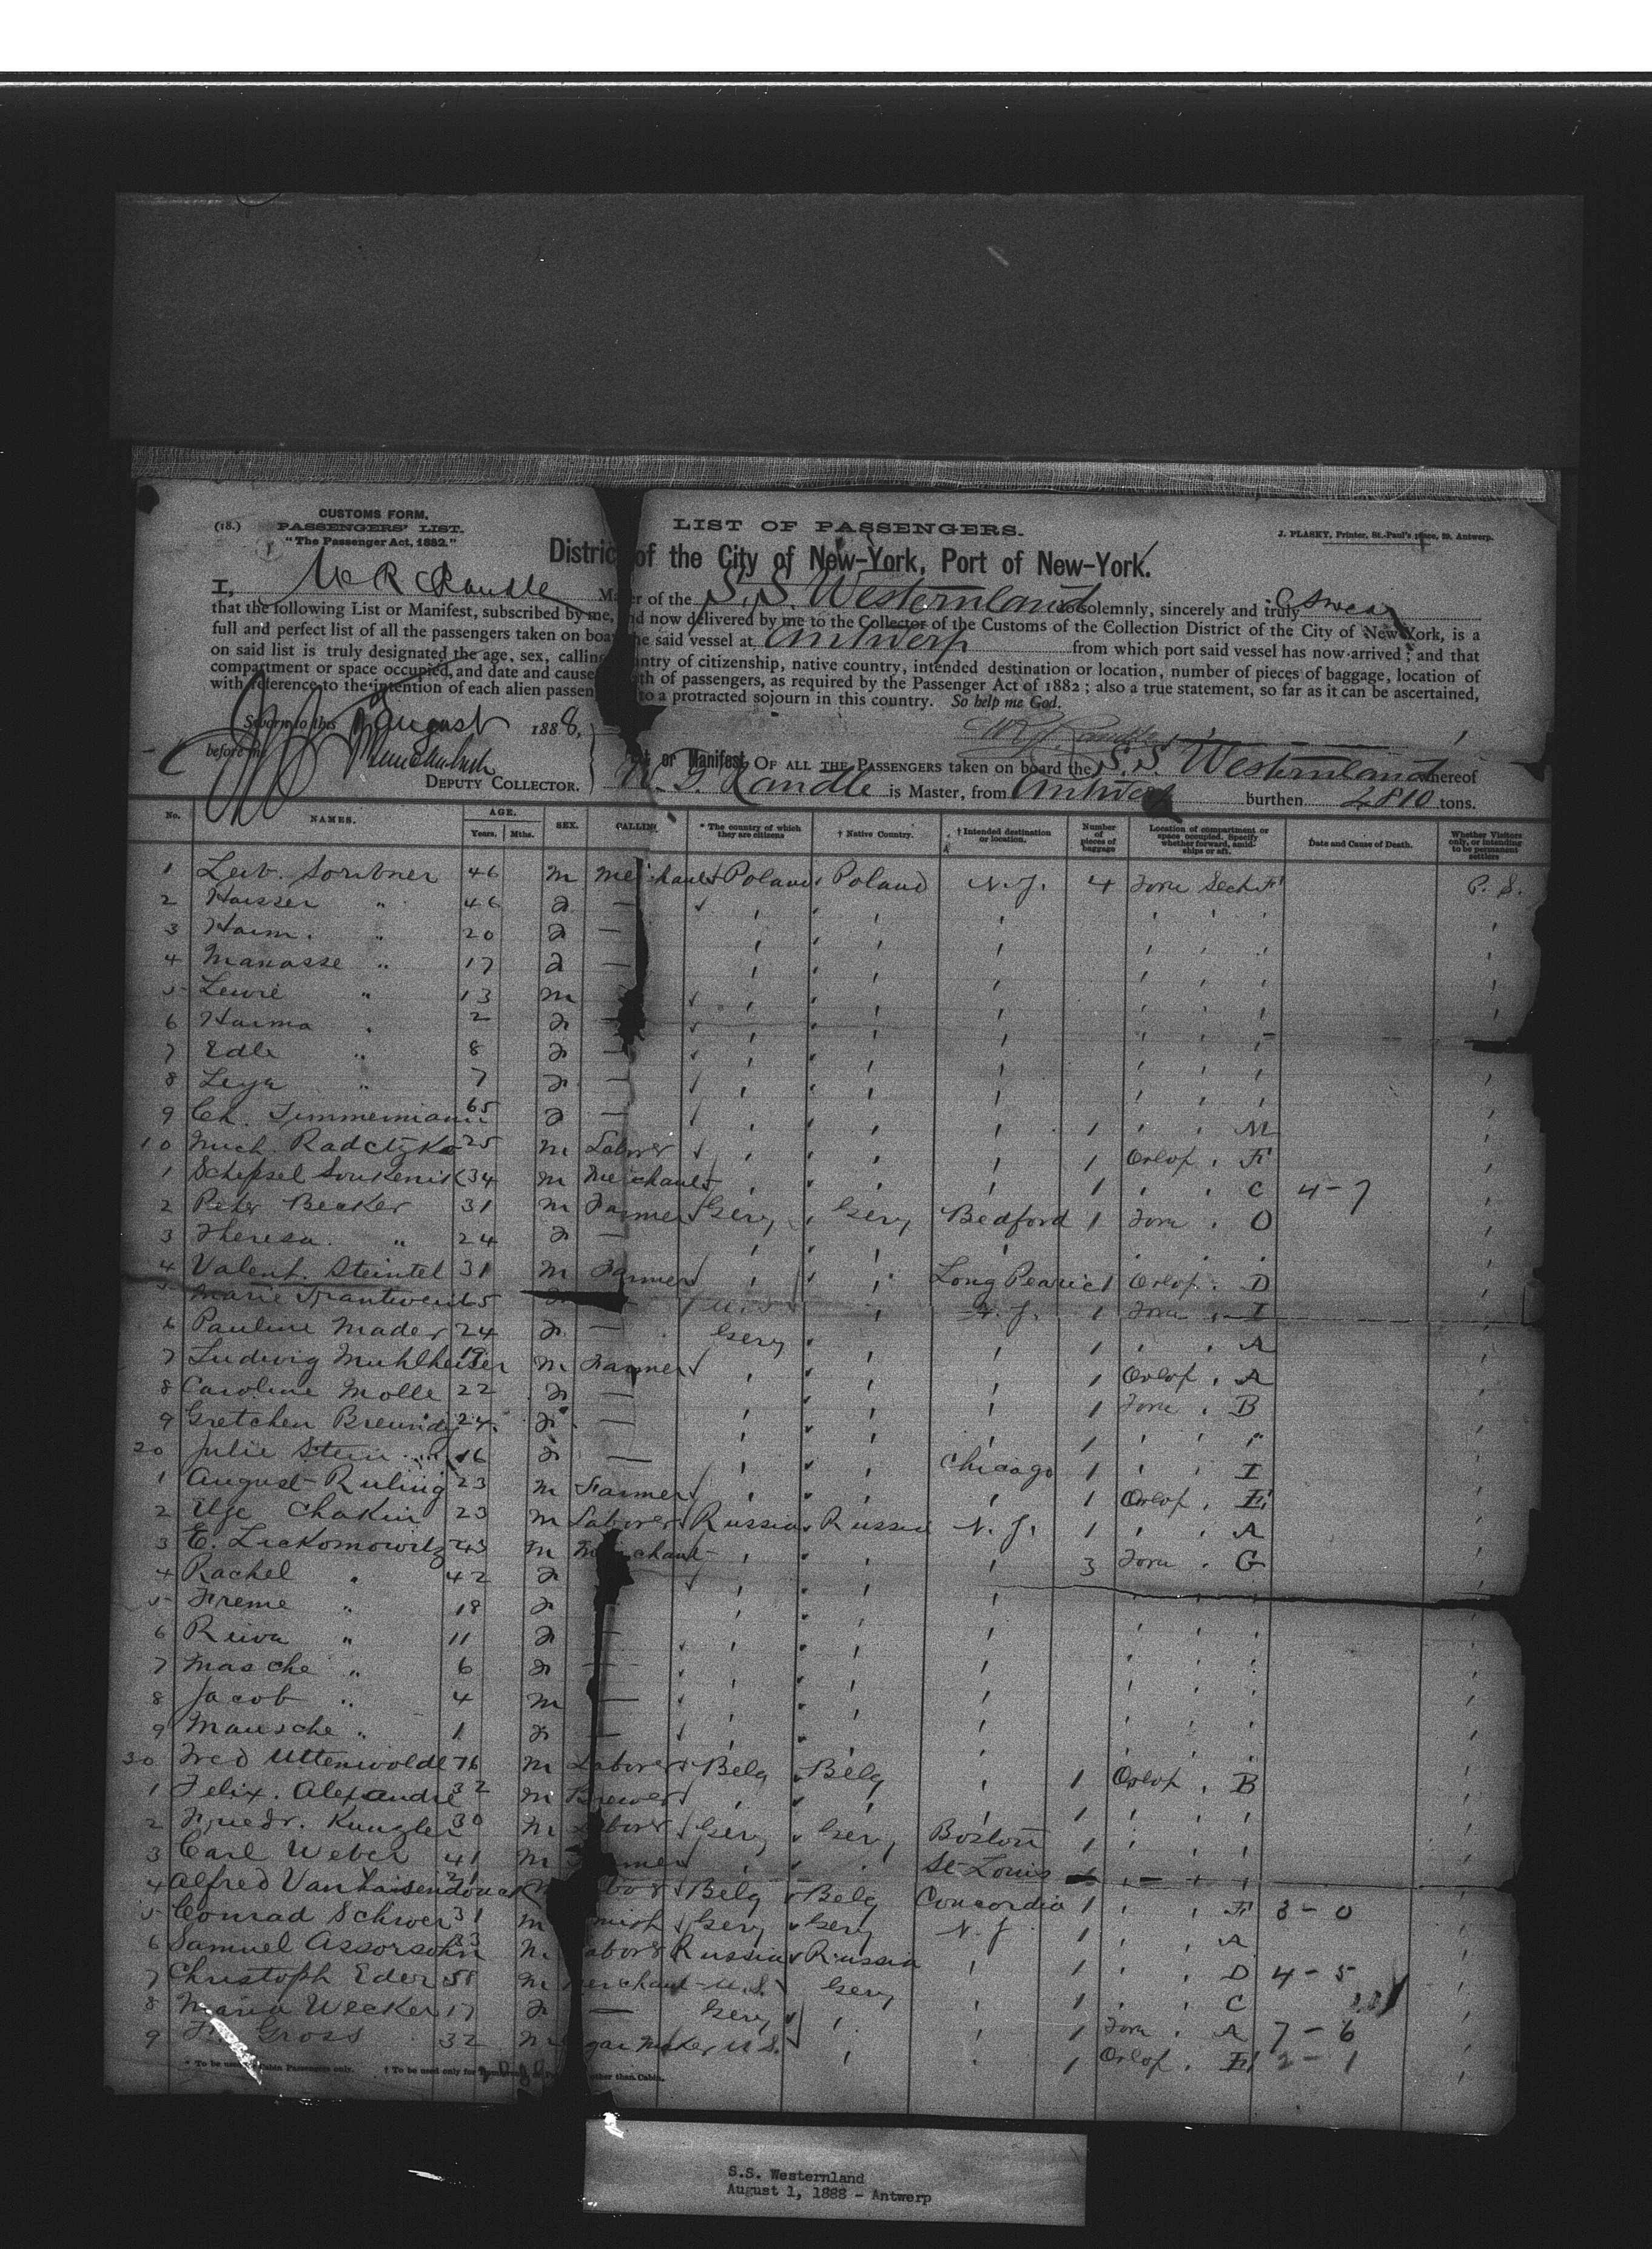 CUSTOMS FORM.
(18.) PASSENGERS' LIST.
"The Passenger Act, 1882."
LIST OF PASSENGERS.
J. PLASKY, Printer, St.-Paul's place, 29, Antwerp.
Distric of the City of New-York, Port of New-York.
I, W R Randle Ma er of the S.S. Westernland do solemnly, sincerely and truly swear
that the following List or Manifest, subscribed by me, nd now delivered by me to the Collector of the Customs of the Collection District of the City of New York, is a
full and perfect list of all the passengers taken on boar he said vessel at Antwerp from which port said vessel has now arrived; and that
on said list is truly designated the age, sex, calling untry of citizenship, native country, intended destination or location, number of pieces of baggage, location of
compartment or space occupied, and date and cause th of passengers, as required by the Passenger Act of 1882; also a true statement, so far as it can be ascertained,
with reference to the intention of each alien passen to a protracted sojourn in this country. So help me God.
Sworn to this 1 August 1888,
before me
DEPUTY COLLECTOR.
or Manifest OF ALL THE PASSENGERS taken on board the S.S. Westernland whereof
Randle is Master, from Antwerp burthen 2810 tons.
No. NAMES. AGE. Years. Mths. SEX. CALLIN * The country of which they are citizens † Native Country. † Intended destination or location. Number of pieces of baggage Location of compartment or space occupied. Specify whether forward, amidships or aft. Date and Cause of Death. Whether Visitors only, or intending to be permanent settlers
1 Leib. Scribner 46 m Me chant Poland Poland N.J. 4 Forw Sect F P. S.
2 Hasser " 46 F —
3 Haim. " 20 F —
4 Manasse " 17 F —
5 Lewie " 13 m
6 Haima " 2 F —
7 Edle " 8 F —
8 Leya " 7 F —
9 Ch. Timmermann 65 F — 1 M
10 Mich. Radctzko 25 m Laborer 1 Orlop F
1 Schepsel Soukenik 34 m Merchant 1 C 4-7
2 Peter Becker 31 m Farmer Gery Gery Bedford 1 Forw O
3 Theresa " 24 F —
4 Valent. Steintel 31 m Farmer Long Pearie 1 Orlop D
5 Marie F U.S. N.J. 1 Forw I
6 Pauline Mader 24 F — Gery 1 A
7 Ludwig Muhlheuser 19 m Farmer 1 Orlop A
8 Caroline Molle 22 F — 1 Forw B
9 Gretchen 24 F — 1 "
20 Julie Stein 16 F — Chicago 1 I
1 August Ruling 23 m Farmer 1 Orlop E
2 Chakin 23 m Laborer Russia Russia N.J. 1 A
3 E. Lickomowitz 43 m M chant 3 Forw G
4 Rachel " 42 F
5 Freme " 18 F
6 Riwa " 11 F —
7 Masche " 6 F —
8 Jacob " 4 m —
9 Mausche " 1 F —
30 Fred Uttenwolde 76 m Laborer Belg Belg 1 Orlop B
1 Felix. Alexandre 32 m Brewer 1
2 Friedr. Kungler 30 m Labor Gery Gery Boston 1
3 Carl Weber 41 m F mer St Louis
4 Alfred Van 21 m Labor Belg Belg Concordia 1 F 3-0
5 Conrad Schwer 31 m mish Gery Gery N.J 1 A
6 Samuel Assorsohn 33 m. abor Russia Russia 1 D 4-5
7 Christoph Eder 58 m erchant U.S. Gery 1 C
8 Maria Wecker 17 F — Gery 1 Forw A 7-6
9 Fr. Gross 32 m gar maker U.S. 1 Orlop E 2-1
* To be used Cabin Passengers only. † To be used only for other than Cabin.
S.S. Westernland
August 1, 1888 - Antwerp